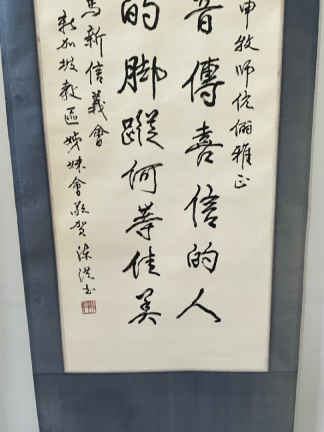 申牧師伉儷雅正
音傳喜信的人
的脚蹤何等佳美
馬新信義會
新加坡教區姊妹會敬賀